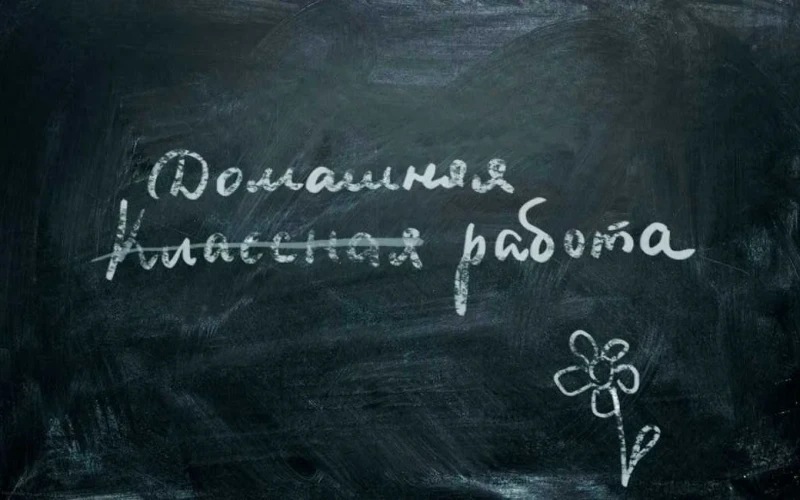 Домашняя
Классная работа